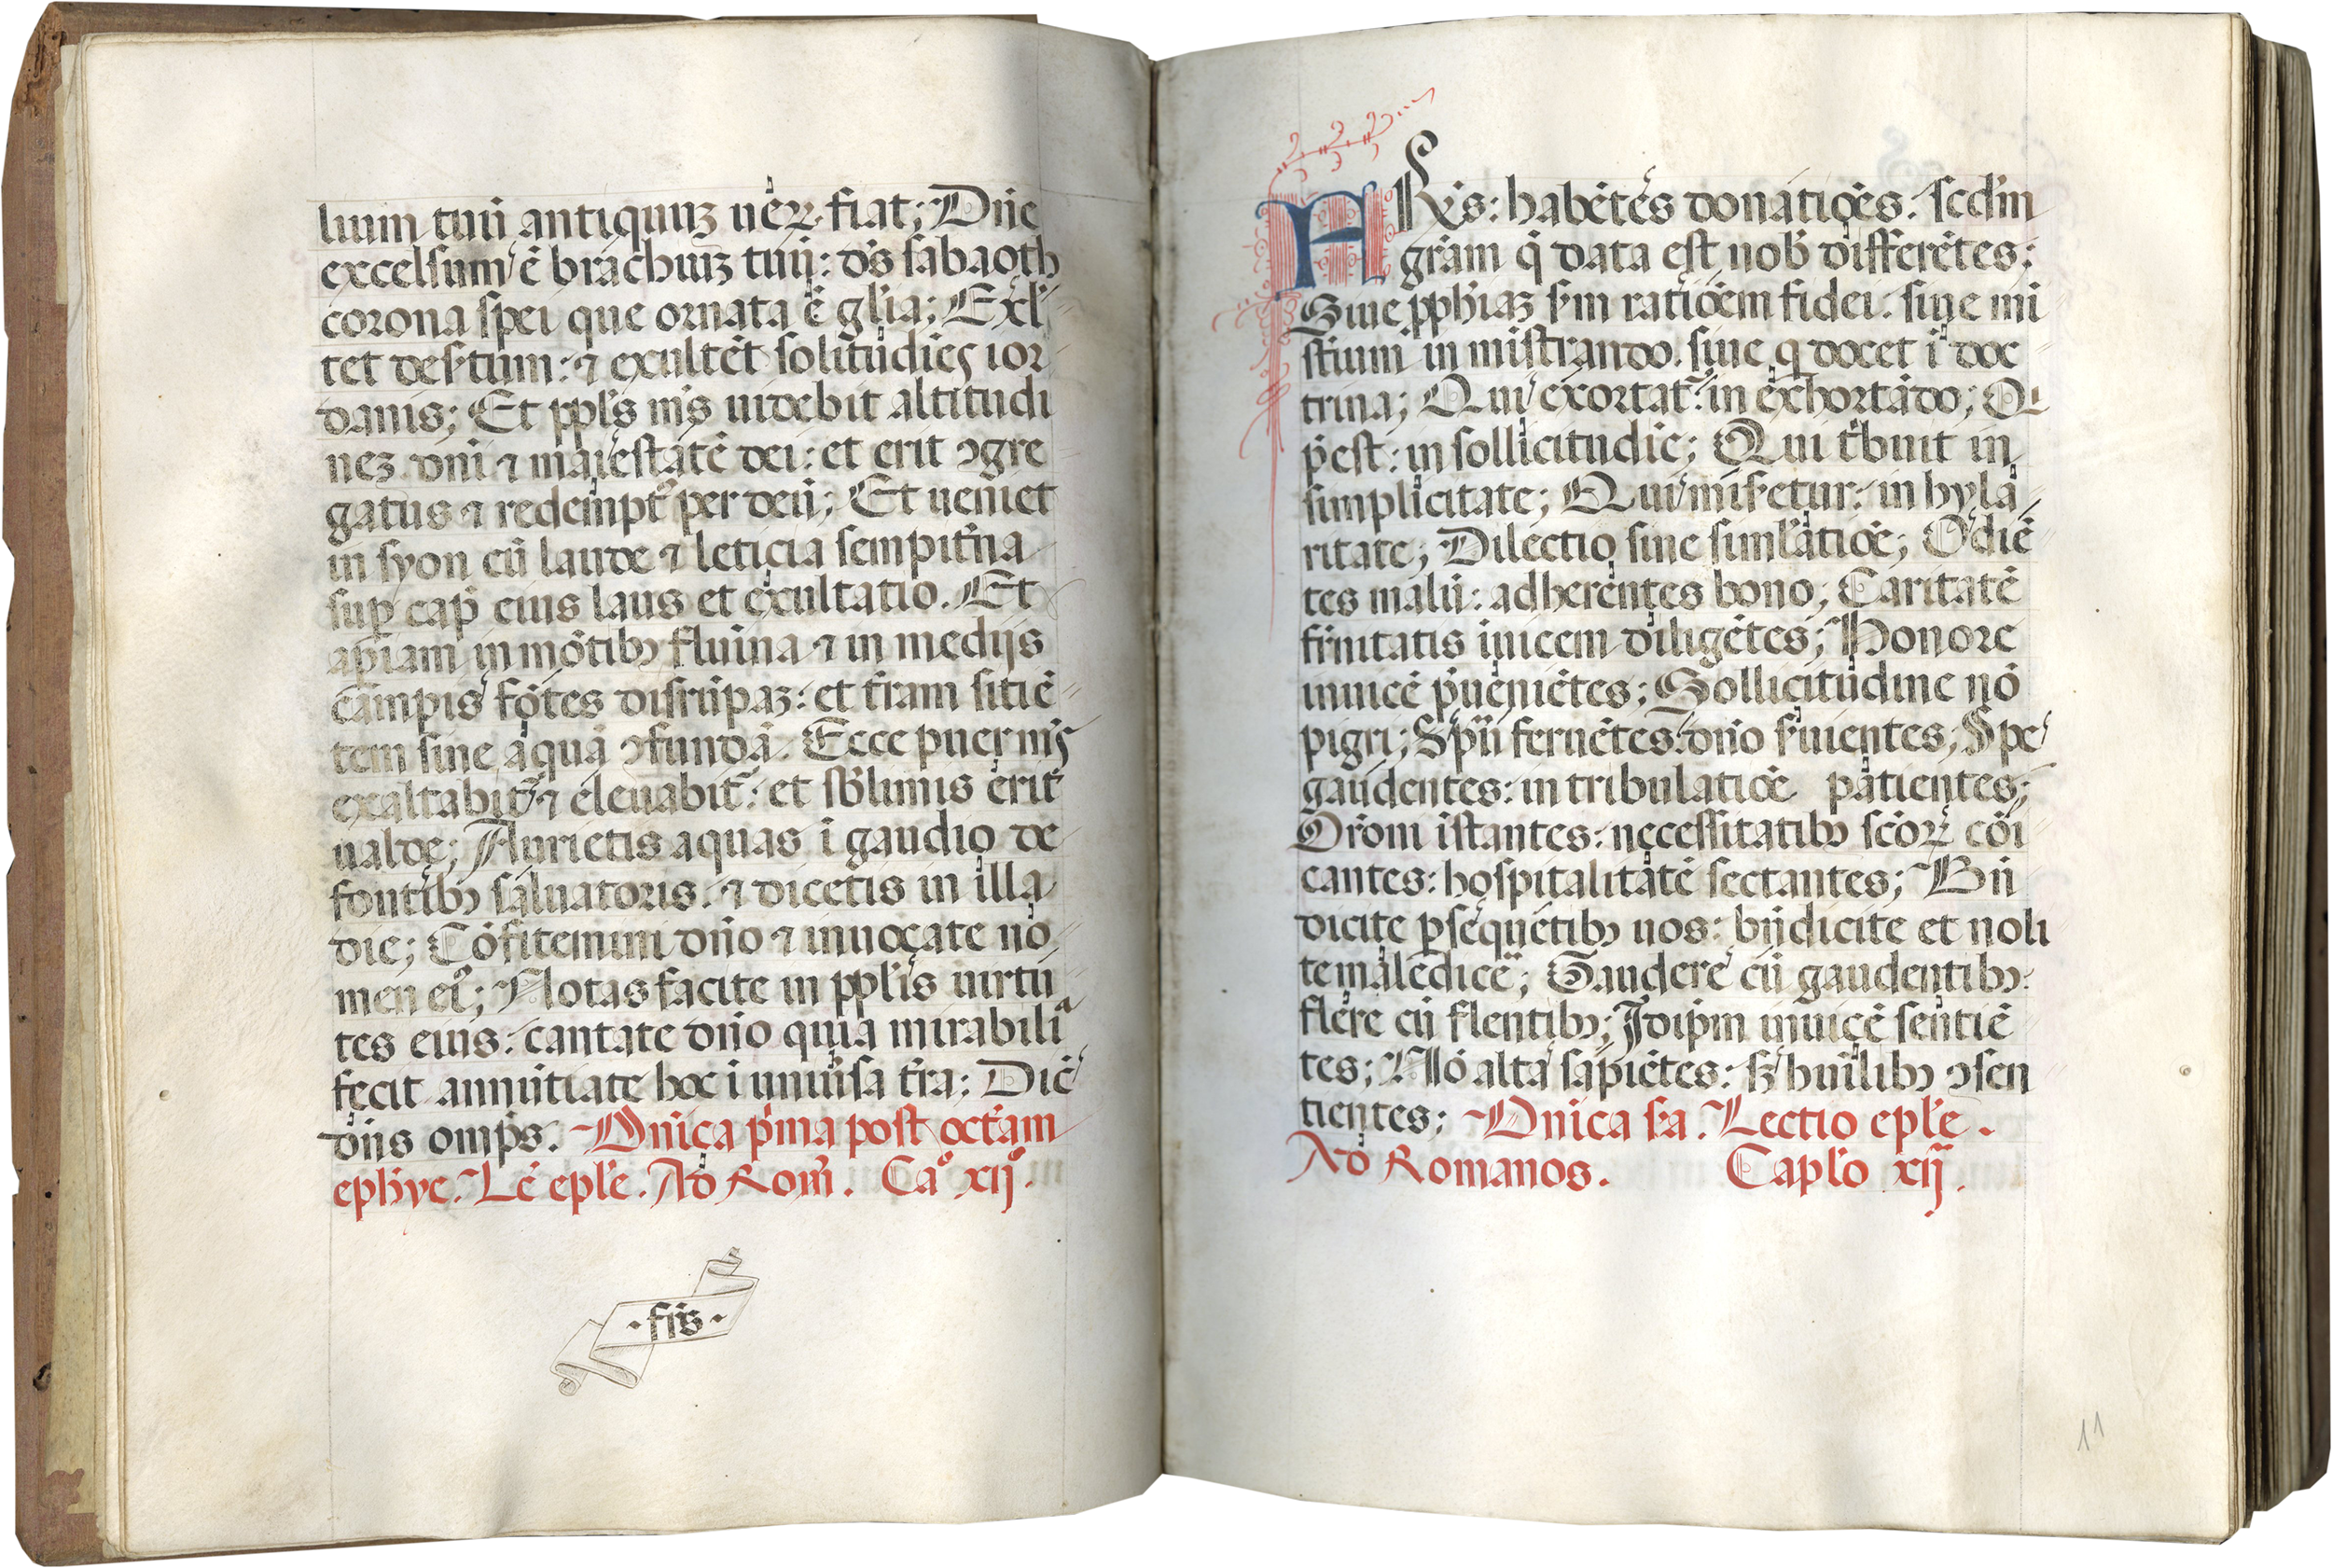 lium tuū antiquuꝫ ueꝝ fiat; Dn̄e
excelsum ē brachiuꝫ tuū: ds̄ sabaoth
corona spei que ornata ē gl̄ia; Exl̄
tet des̄tum: ⁊ exultēt solitudiēs ior
danis; Et ppl̄s ms̄ uidebit altitudi
neꝫ dn̄i ⁊ maiestatē dei: et erit ꝯgre
gatus ⁊ redempt᷒ per deū; Et ueniet
in syon cū laude ⁊ leticia sempit̄na
suꝑ cap̄ eius laus et exultatio. Et
ap̄iam in mōtibꝫ flumina ⁊ in medijs
campis fōtes disrūpaꝫ: et t̄ram sitiē
tem sine aqua ꝯfundā. Ecce puer ms̄
exaltabit᷑ ⁊ eleuabit᷑: et sb̄limis erit
ualde; Aurietis aquas ī gaudio de
fontibꝫ saluatoris: ⁊ dicetis in illa
die; Cōfitemini dn̄o ⁊ inuocate no
men ei᷒; Notas facite in ppl̄is uirtu
tes eius: cantate dn̄o quia mirabiliᵃ
fecit annūtiate hoc ī uniūsa t̄ra; Dic̄
dn̄s omp̄s. Dn̄ica p̄ma post octām
eph̄ye. Lc̄ epl̄e. Ad Rom̄. Caº xijº.
·fr̄is·
ARx̄s: habētes donatiōes: scd̄m
grām q̄ data est nob̄ differētes:
Siue ꝓphīaꝫ s̄m ratiōem fidei: siue mi
st̄ium in mīstrando. siue q̄ docet ī doc
trina; Qui exortat᷑: in exhortādo; Q̄
p̄est: in sollicitudīe; Qui t̄buit in
simplicitate; Qui mis̄etur: in hyla
ritate; Dilectio sine siml̄atiōe; Odiē
tes malū: adherentes bono; Caritatē
fr̄nitatis inuicem diligētes; Honore
inuicē p̄ueniētes; Sollicitudine nō
pigri; Sp̄u feruētes: dn̄o s̄uientes; Spe
gaudentes: in tribulatiōe patientes;
Or̄oni īstantes: necessitatibꝫ sc̄oꝝ cōi
cantes: hospitalitatē sectantes; Bn̄
dicite ꝑsequētibꝫ uos: bn̄dicite et noli
te maledicē; Gaudere cū gaudentibꝫ:
flere cū flentibꝫ; Idip̄m inuicē sentiē
tes; Nō alta sapiētes: sꝫ hūilibꝫ ꝯsen
tientes; Dn̄ica s̄a. Lectio epl̄e.
Ad Romanos. Capl̄o xij.
11